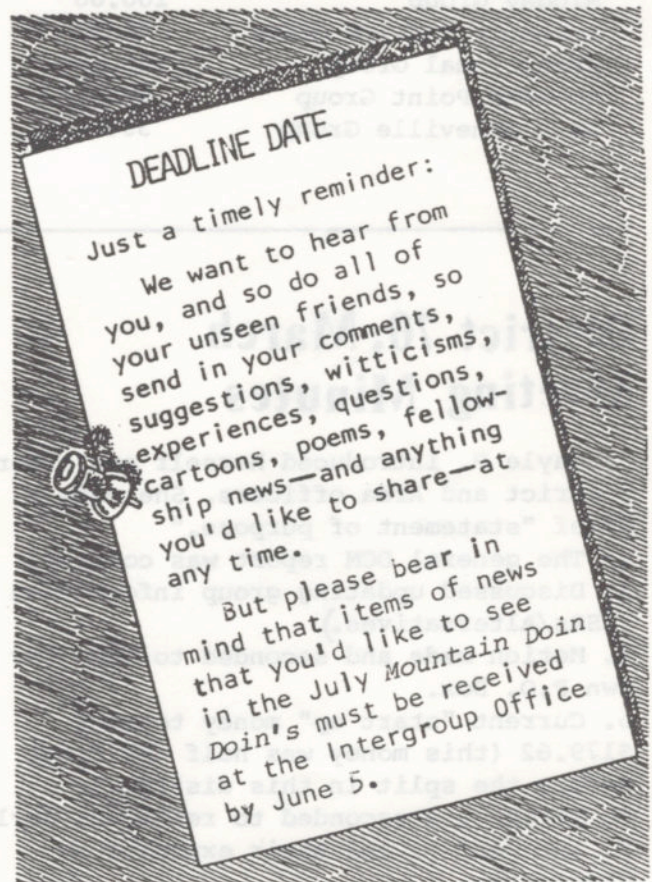 DEADLINE DATE
Just a timely reminder:
We want to hear from
you, and so do all of
your unseen friends, so
send in your comments,
suggestions, witticisms,
experiences, questions,
cartoons, poems, fellow-
ship news--and anything
you'd like to share--at
any time.
But please bear in
mind that items of news
that you'd like to see
in the July Mountain Doin
Doin's must be received
at the Intergroup Office
by June 5.